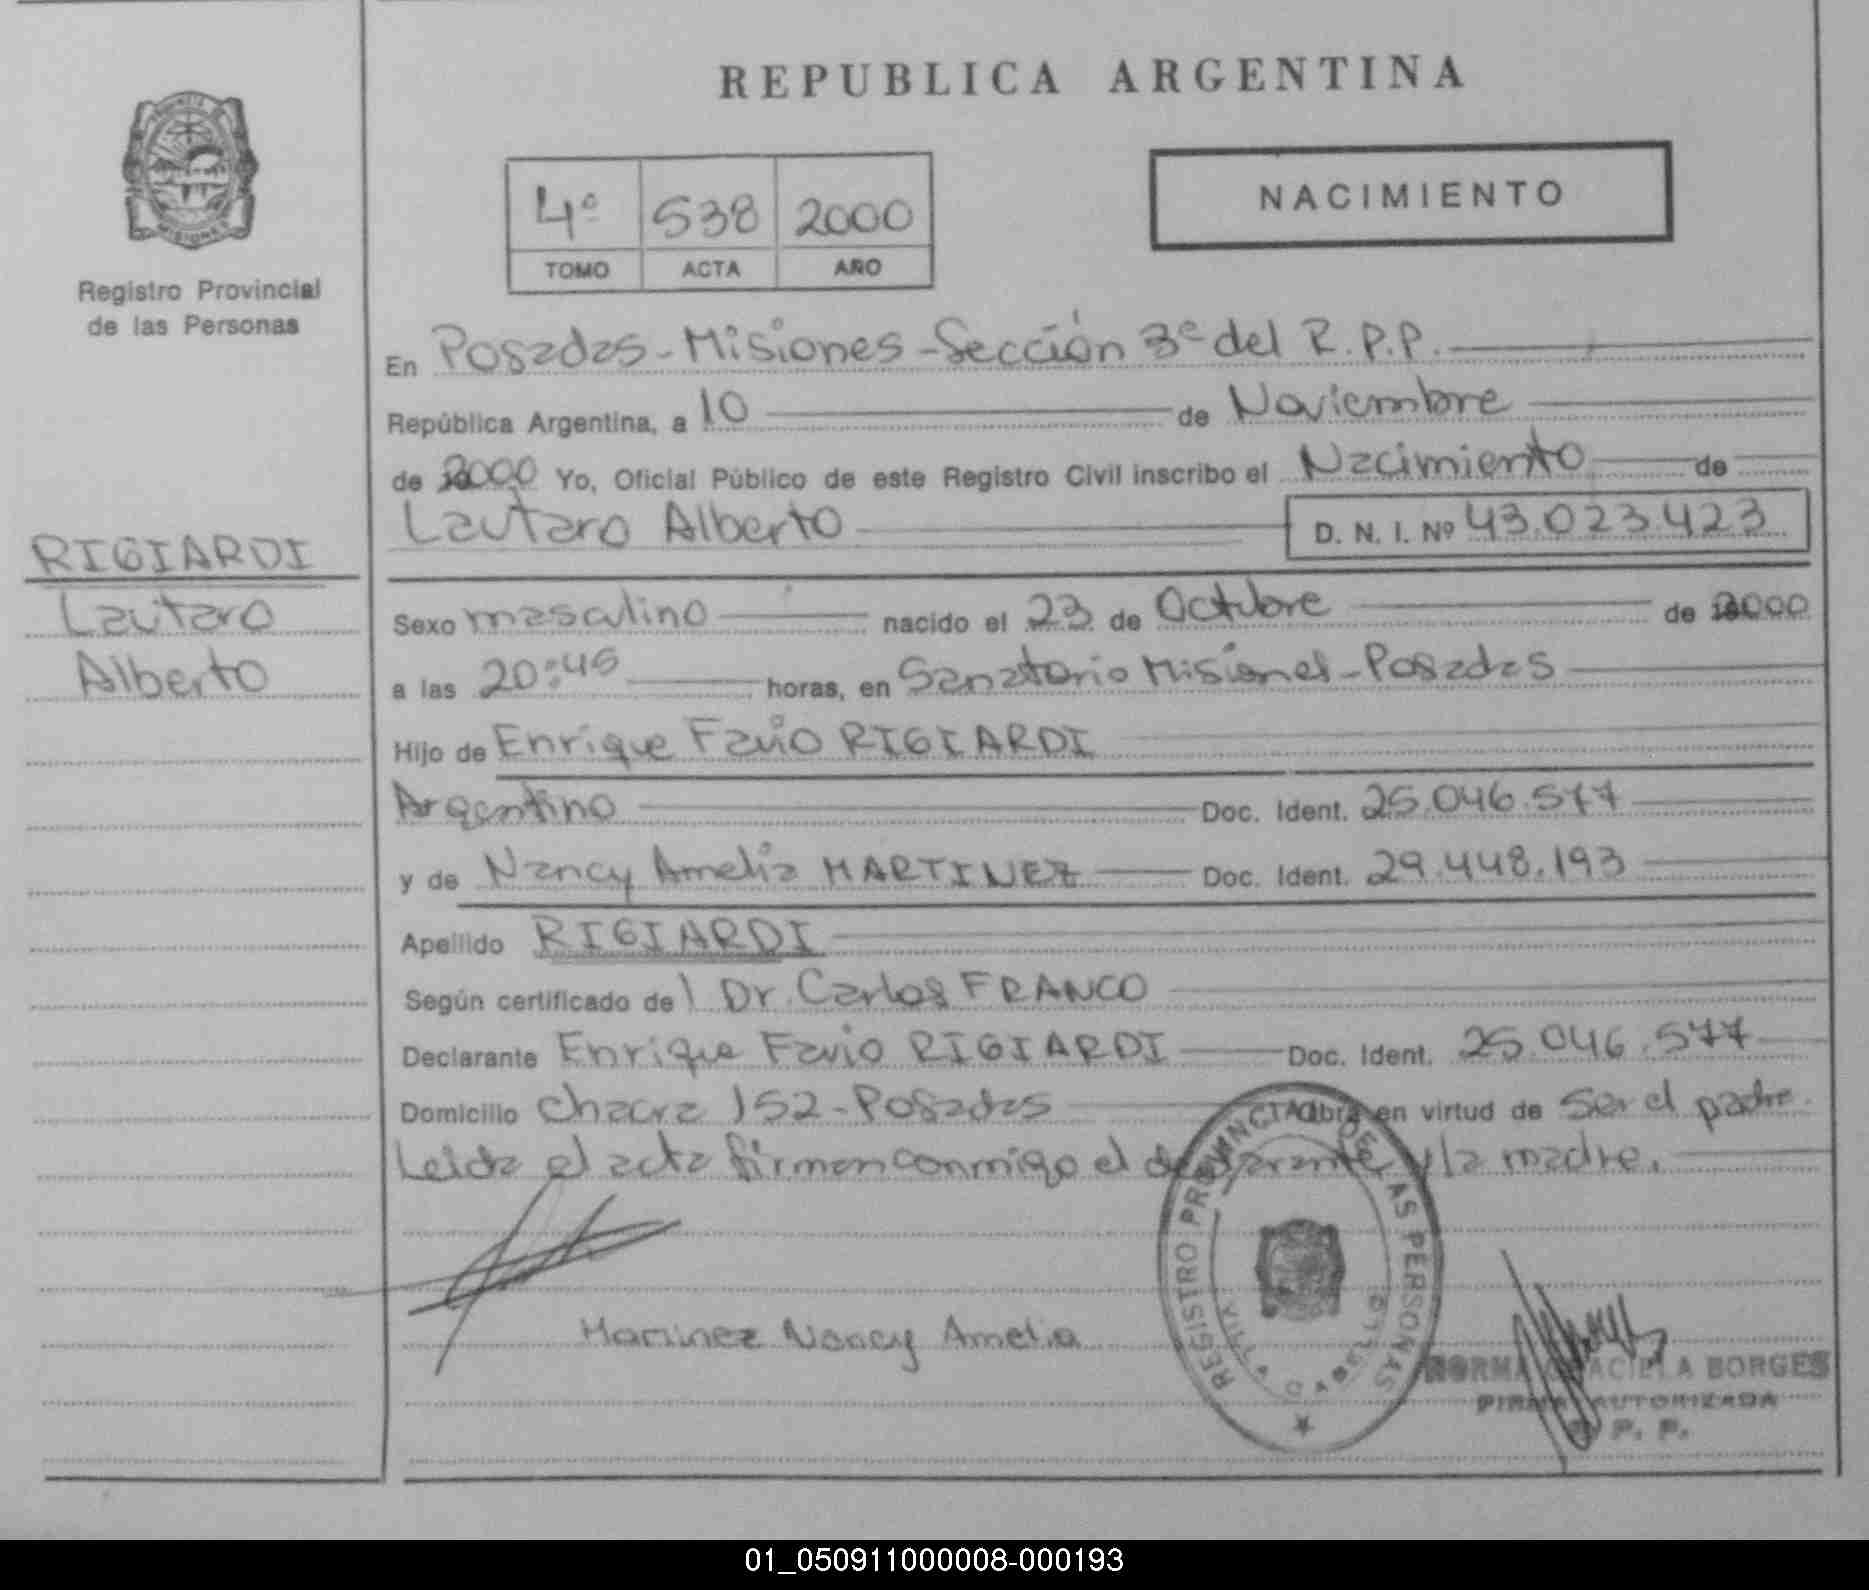 REPUBLICA ARGENTINA
MISIONES
Registro Provincial
de las Personas
4º 538 2000
TOMO ACTA AÑO
NACIMIENTO
En Posadas-Misiones-Sección 3ª del R.P.P.
República Argentina, a 10 de Noviembre
de 2000 Yo, Oficial Público de este Registro Civil inscribo el Nacimiento de
Lautaro Alberto D. N. I. Nº 43.023.423
RIGIARDI
Lautaro
Alberto
Sexo masculino nacido el 23 de Octubre de 2000
a las 20:45 horas, en Sanatorio Misiones-Posadas
Hijo de Enrique Favio RIGIARDI
Argentino Doc. Ident. 25.046.577
y de Nancy Amelia MARTINEZ Doc. Ident. 29.448.193
Apellido RIGIARDI
Según certificado de l Dr. Carlos FRANCO
Declarante Enrique Favio RIGIARDI Doc. Ident. 25.046.577
Domicilio Chacra 152-Posadas Obra en virtud de ser el padre.
Leida el acta firman conmigo el declarante y la madre.
Martinez Nancy Amelia
REGISTRO PROVINCIAL DE LAS PERSONAS
NORMA GRACIELA BORGES
FIRMA AUTORIZADA
R. P. P.
01_050911000008-000193